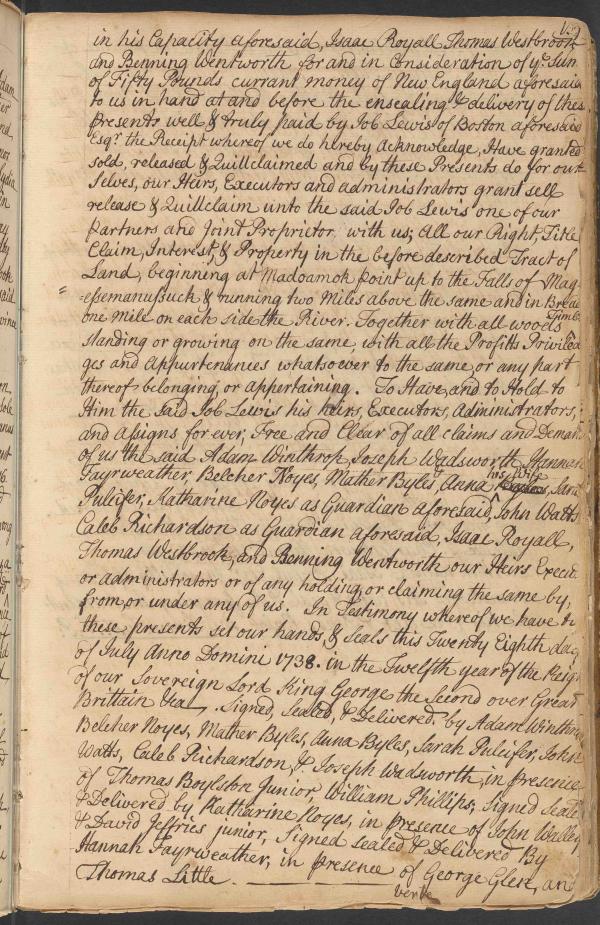 in his Capacity aforesaid, Isaac Royall Thomas Westbrook
and Benning Wentworth for and in Consideration of ye Sum
of Fifty Pounds currant money of New England aforesaid
to us in hand at and before the ensealing & delivery of thes
Presents well & truly paid by Job Lewis of Boston aforesaid
Esqr. the Receipt whereof we do hereby acknowledge, Have granted
sold, released & Quillclaimed and by these Presents do for our
Selves, our Heirs, Executors and administrators grant sell
release & Quillclaim unto the said Job Lewis one of our
Partners and Joint Proprietor with us; All our Right, Title
Claim, Interest, & Property in the before described Tract of
Land, beginning at Madoamok point up to the Falls of Mag-
=esemanussuck & running two Miles above the same and in Breae
one mile on each side the River. Together with all woods Timbr
standing or growing on the same, with all the Profitts Priviled
ges and Appurtenances whatsoever to the same, or any part
thereof belonging, or appertaining. To Have, and to Hold to
Him the said Job Lewis his heirs, Executors, Administrators,
and assigns for ever, Free and Clear of all claims and Deman
of us the said Adam Winthrop, Joseph Wadsworth, Hannah
Fayrweather, Belcher Noyes, Mather Byles, Anna his Wife, Sara
Pulcifer, Katharine Noyes as Guardian aforesaid, John Watts
Caleb Richardson as Guardian aforesaid, Isaac Royall,
Thomas Westbrook, and Benning Wentworth our Heirs Execu
or administrators or of any holding, or claiming the same by,
from, or under any of us. In Testimony whereof we have to
these presents set our hands, & Seals this Twenty Eighth day
of July Anno Domini 1738. in the Twelfth year of the Reign
of our Sovereign Lord King George the Second over Great
Brittain &ca. Signed, Sealed, & Delivered, by Adam Winthro
Belcher Noyes, Mather Byles, Anna Byles, Sarah Pulcifer, John
Watts, Caleb Richardson, & Joseph Wadsworth, in presence
of Thomas Boylston Junior, William Phillips; Signed Seale
& Delivered by Katharine Noyes, in presence of John Walley
& David Jeffries junior, Signed sealed & Delivered By
Hannah Fayrweather, in Presence of George Glen, and
Thomas Little.